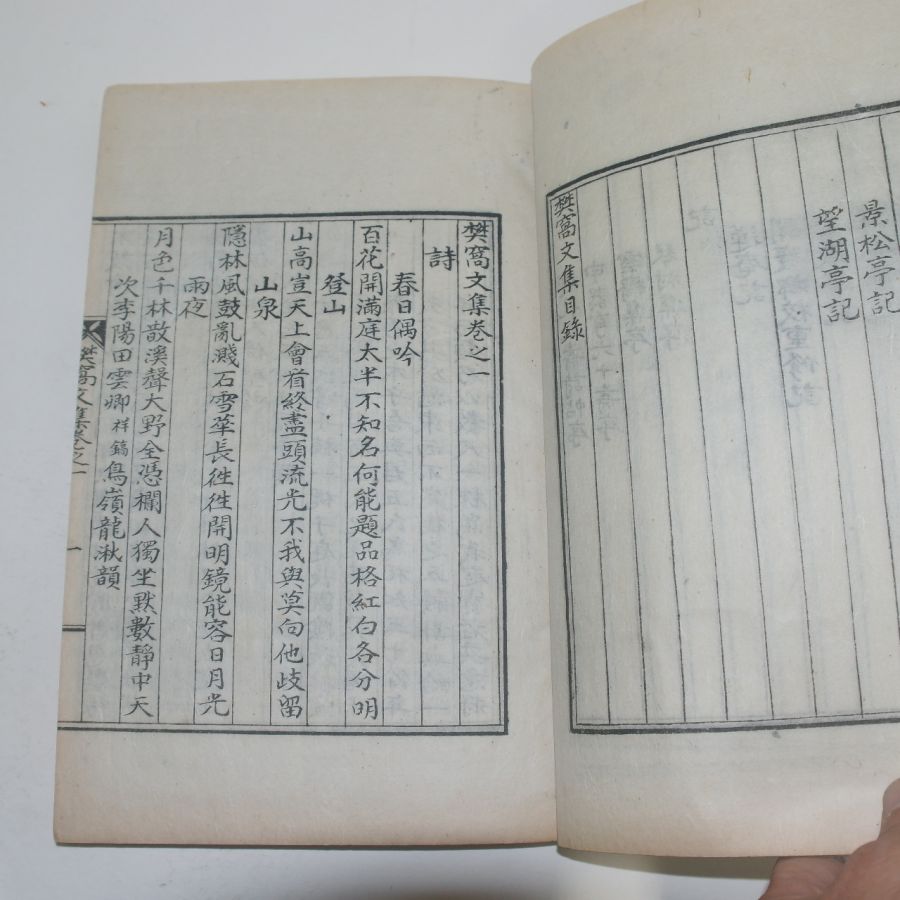 景松亭記
望湖亭記
樊窩文集目錄
樊窩文集卷之一
詩
春日偶吟
百花開滿庭太半不知名何能題品格紅白各分明
登山
山高豈天上會着終盡頭流光不我與莫向他歧留
山泉
隱林風鼓亂濺石雪華長徃徃開明鏡能容日月光
雨夜
月色千林散溪聲大野全憑欄人獨坐默數靜中天
次李陽田雲卿祥鎬鳥嶺龍湫韻
樊窩文集卷之一
一